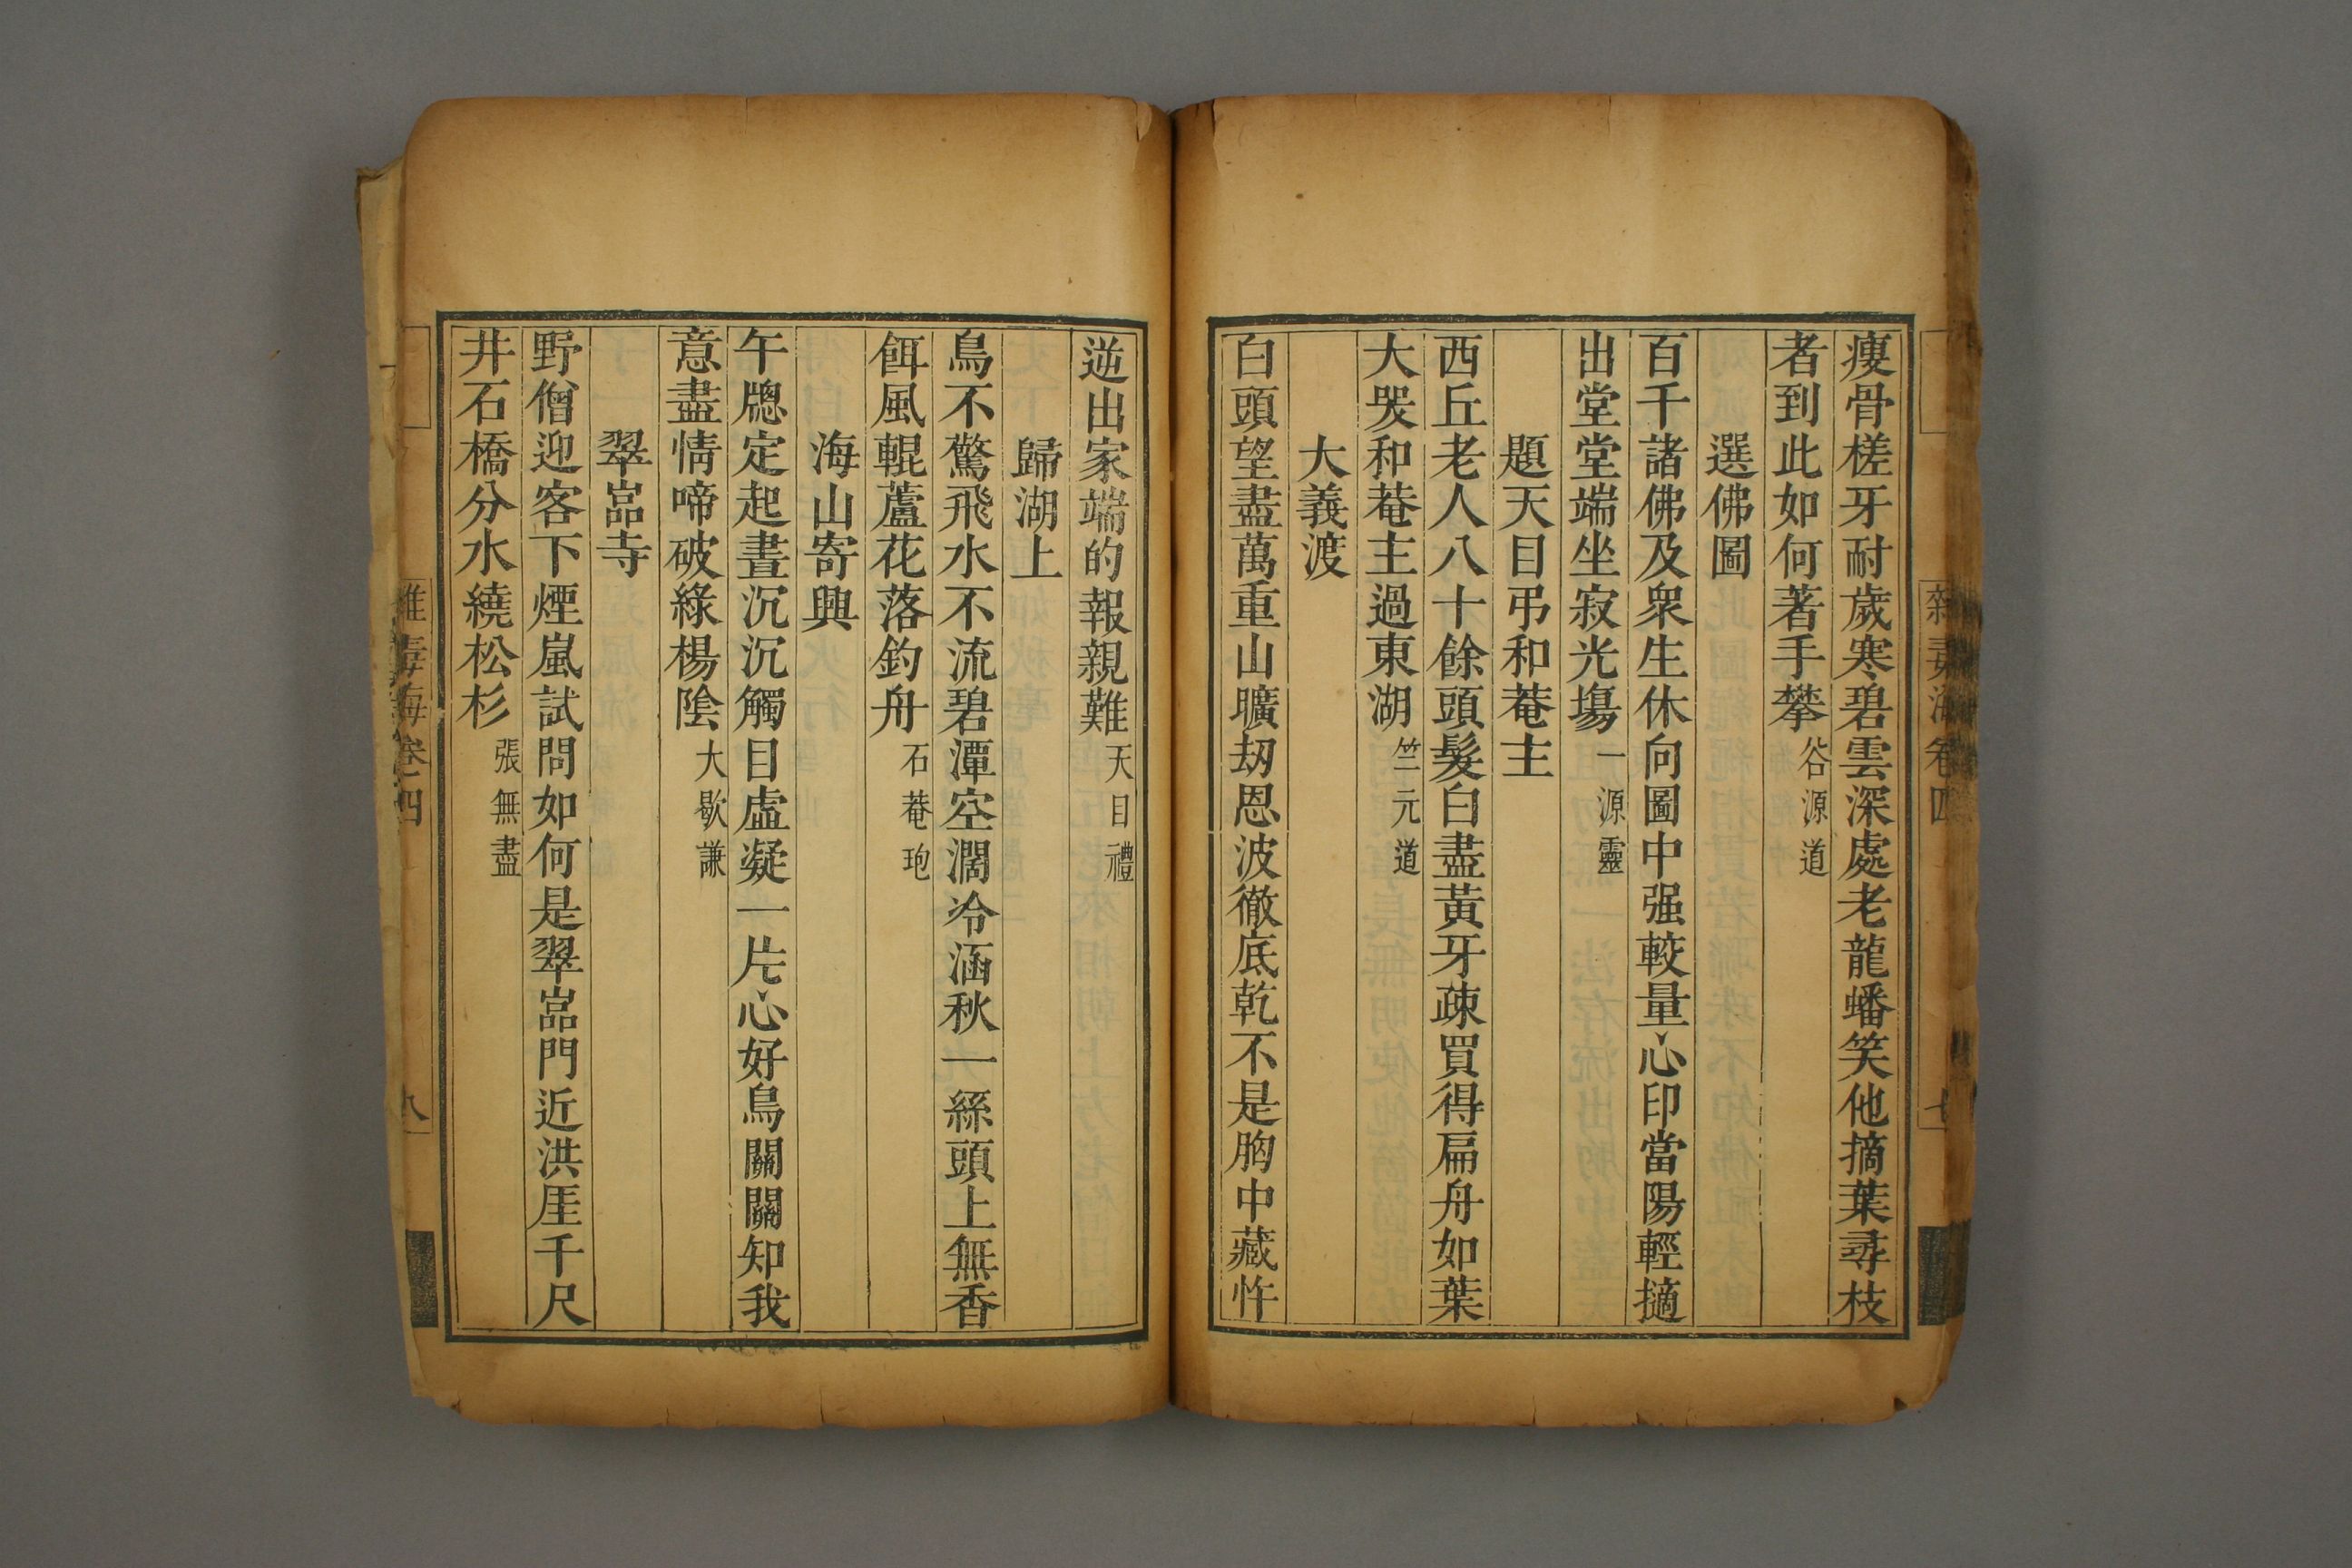 瘦骨槎牙耐歲寒碧雲深處老龍蟠笑他摘葉尋枝
者到此如何著手攀 谷源道
選佛圖
百千諸佛及衆生休向圖中强較量心印當陽輕擿
出堂堂端坐寂光塲 一源靈
題天目弔和菴主
西丘老人八十餘頭髮白盡黃牙疎買得扁舟如葉
大哭和菴主過東湖 竺元道
大義渡
白頭望盡萬重山曠刼恩波徹底乾不是胸中藏忤
逆出家端的報親難 天目禮
歸湖上
鳥不驚飛水不流碧潭空濶冷涵秋一絲頭上無香
餌風輥蘆花落釣舟 石菴玿
海山寄興
午牕定起晝沉沉觸目虛凝一片心好鳥關關知我
意盡情啼破綠楊陰 大歇謙
翠嵓寺
野僧迎客下煙嵐試問如何是翠嵓門近洪厓千尺
井石橋分水繞松杉 張無盡
雜毒海卷四
八